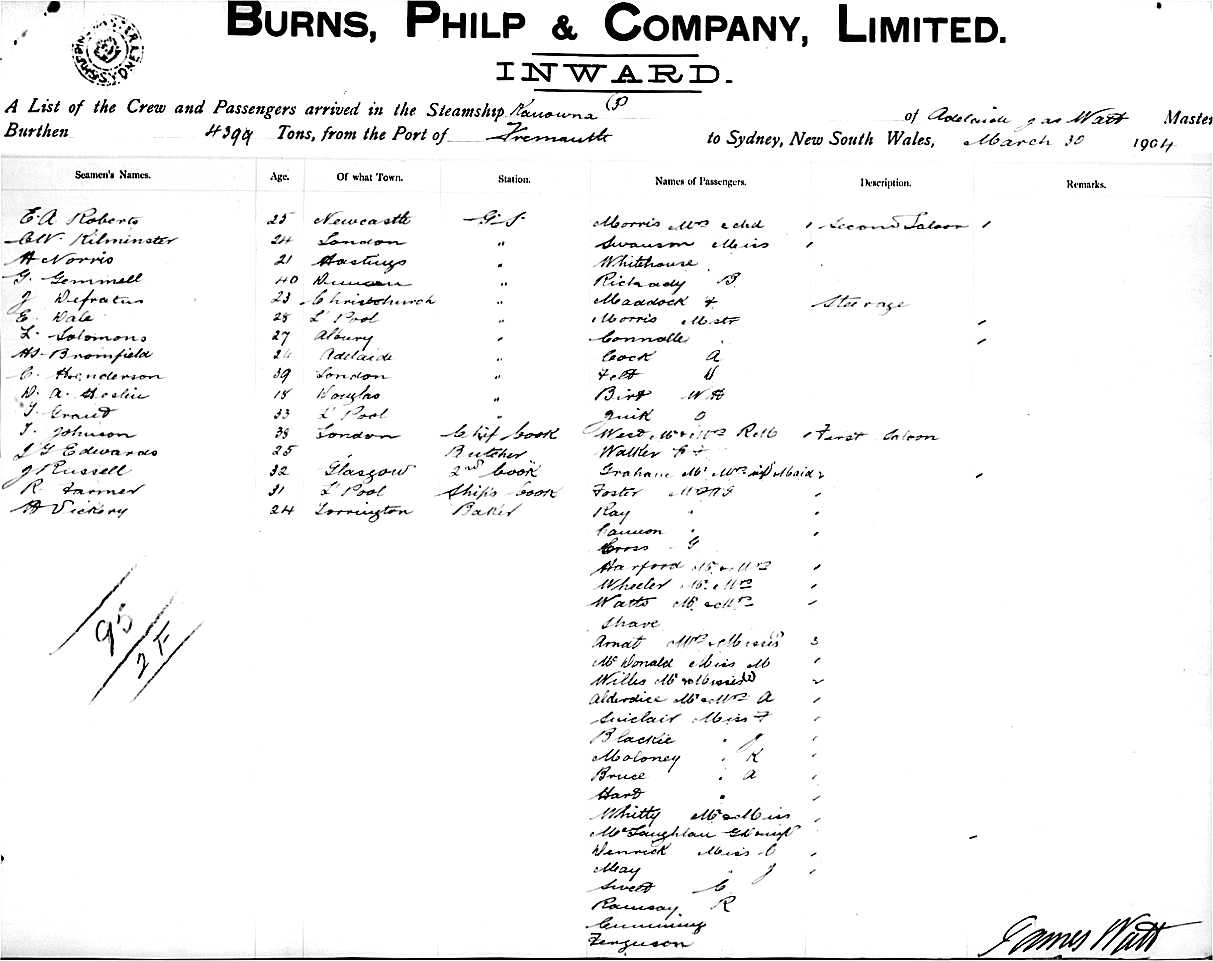 BURNS, PHILP & COMPANY, LIMITED.
INWARD.
A List of the Crew and Passengers arrived in the Steamship Kanowna (P) of Adelaide Jas Watt Master
Burthen 4399 Tons, from the Port of Fremantle to Sydney, New South Wales, March 30 1904
Seamen's Names. Age. Of what Town. Station. Names of Passengers. Description. Remarks.
E. A Roberts 25 Newcastle G. S. Morris Mrs & chd Second Saloon
C W. Kilminster 24 London " Swanson Miss
H Norris 21 Hastings " Whitehouse
G. Gemmell 40 Duncan " B.
J Defratus 23 Christchurch " Maddock Steerage
E. Dale 28 L'Pool " Morris Mstr
L. Solomons 27 Albury " Connolle
Bromfield Adelaide " Cock A
C. Henderson 39 London " Felt
D. A. Heslin 18 Douglas " Birt W H
T. Grant 33 L'Pool " Quik O
T. Johnson 38 London Chief Cook West Mr & Mrs First Saloon
J G Edwards 25 Butcher Walker
J Russell 32 Glasgow 2nd Cook Grahame Mr Mrs Maid
R Farmer 31 L'Pool Ship's Cook Foster
H Vickery 24 Torrington Baker Ray "
Cannon "
Cross G
Harford Mr & Mrs
Wheeler Mr & Mrs
Watts Mr & Mrs
Shave
Arndt Mrs & Misses 3
McDonald Miss M
Willis Mr & Misses 2
Alderdice Mr & Mrs A
Sinclair Miss F
Blackie " J
Moloney " K
Bruce " A
Hard "
Whitty Mr & Miss
McLaughlan
Denrick Miss C
May J
Swett C
Ramsay R
Cumming
Ferguson
95
2 F
James Watt